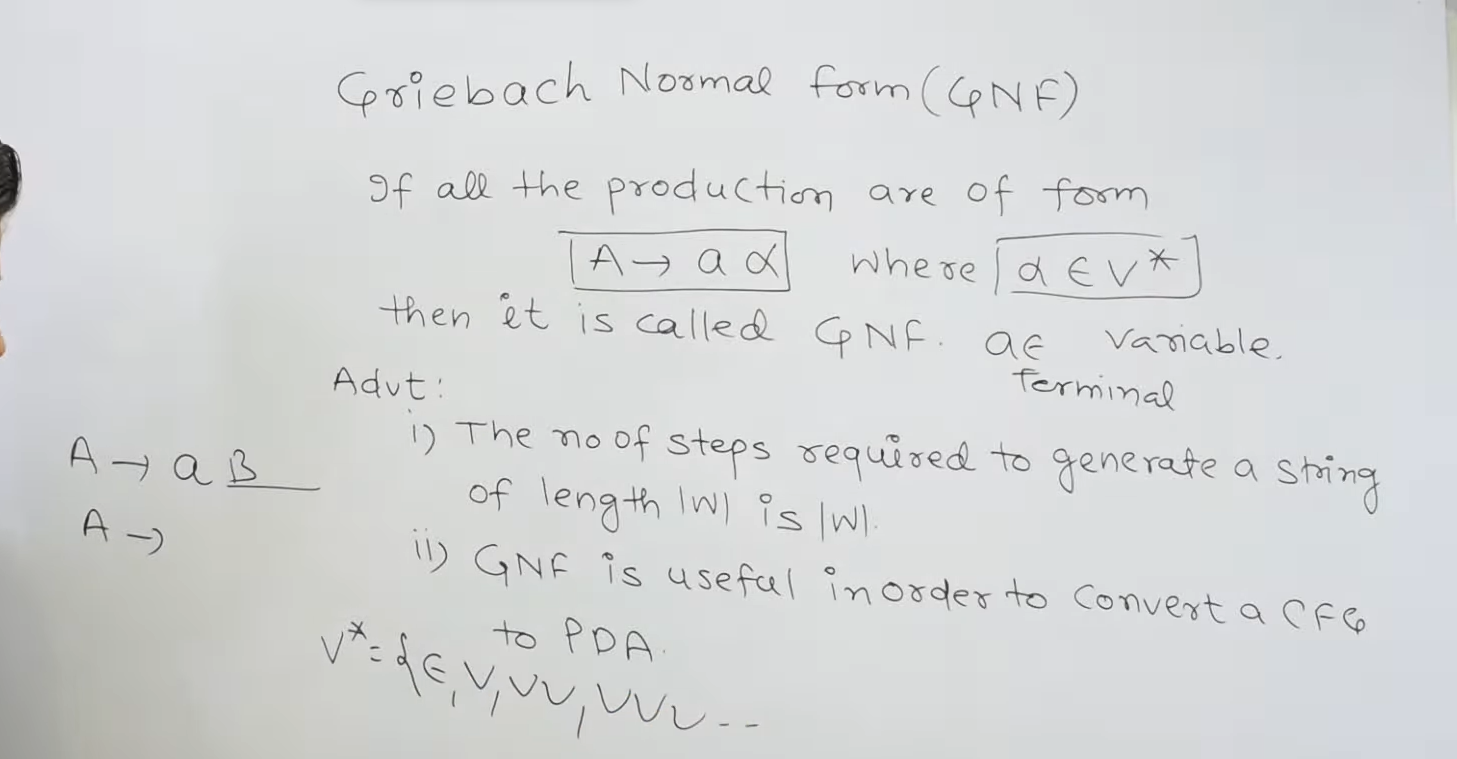 Griebach Normal form (GNF)
If all the production are of form
A → a α where α ∈ V*
then it is called GNF. a ∈ variable.
Terminal
Advt:
i) The no of steps required to generate a string
of length |W| is |W|.
A → a B
A →
ii) GNF is useful inorder to convert a CFG
to PDA.
V* = {ϵ, V, VV, VVV - -